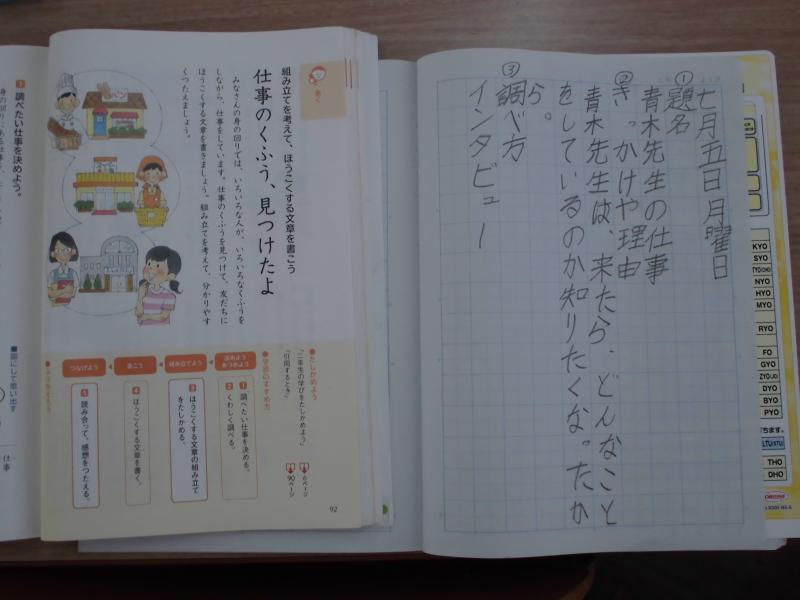 七月五日 月曜日
①題名
青木先生の仕事
②きっかけや理由
青木先生は、来たら、どんなこと
をしているのか知りたくなったか
ら。
③調べ方
インタビュー
KYO
SYO
NYO
HYO
MYO
RYO
FO
GYO
DYO
BYO
PYO
THO
DHO
書く
組み立てを考えて、ほうこくする文章を書こう
仕事のくふう、見つけたよ
みなさんの身の回りでは、いろいろな人が、いろいろなくふうを
しながら、仕事をしています。仕事のくふうを見つけて、友だちに
ほうこくする文章を書きましょう。組み立てを考えて、分かりやす
くつたえましょう。
パン
●たしかめよう
「二年生の学びをたしかめよう」
6ページ
「引用するとき」
90ページ
●学習のすすめ方
決めよう
あつめよう
組み立てよう
書こう
つなげよう
1 調べたい仕事を決める。
2 くわしく調べる。
3 ほうこくする文章の組み立て
をたしかめる。
4 ほうこくする文章を書く。
5 読み合って、感想をつたえる。
92
1 調べたい仕事を決めよう。
■図にして思い出す
仕事